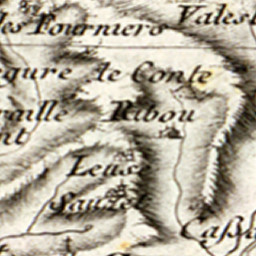 les Fourniers
Valest
egure le Conte
raille
Ribou
nt
Leus
Sauzet
Caſsa